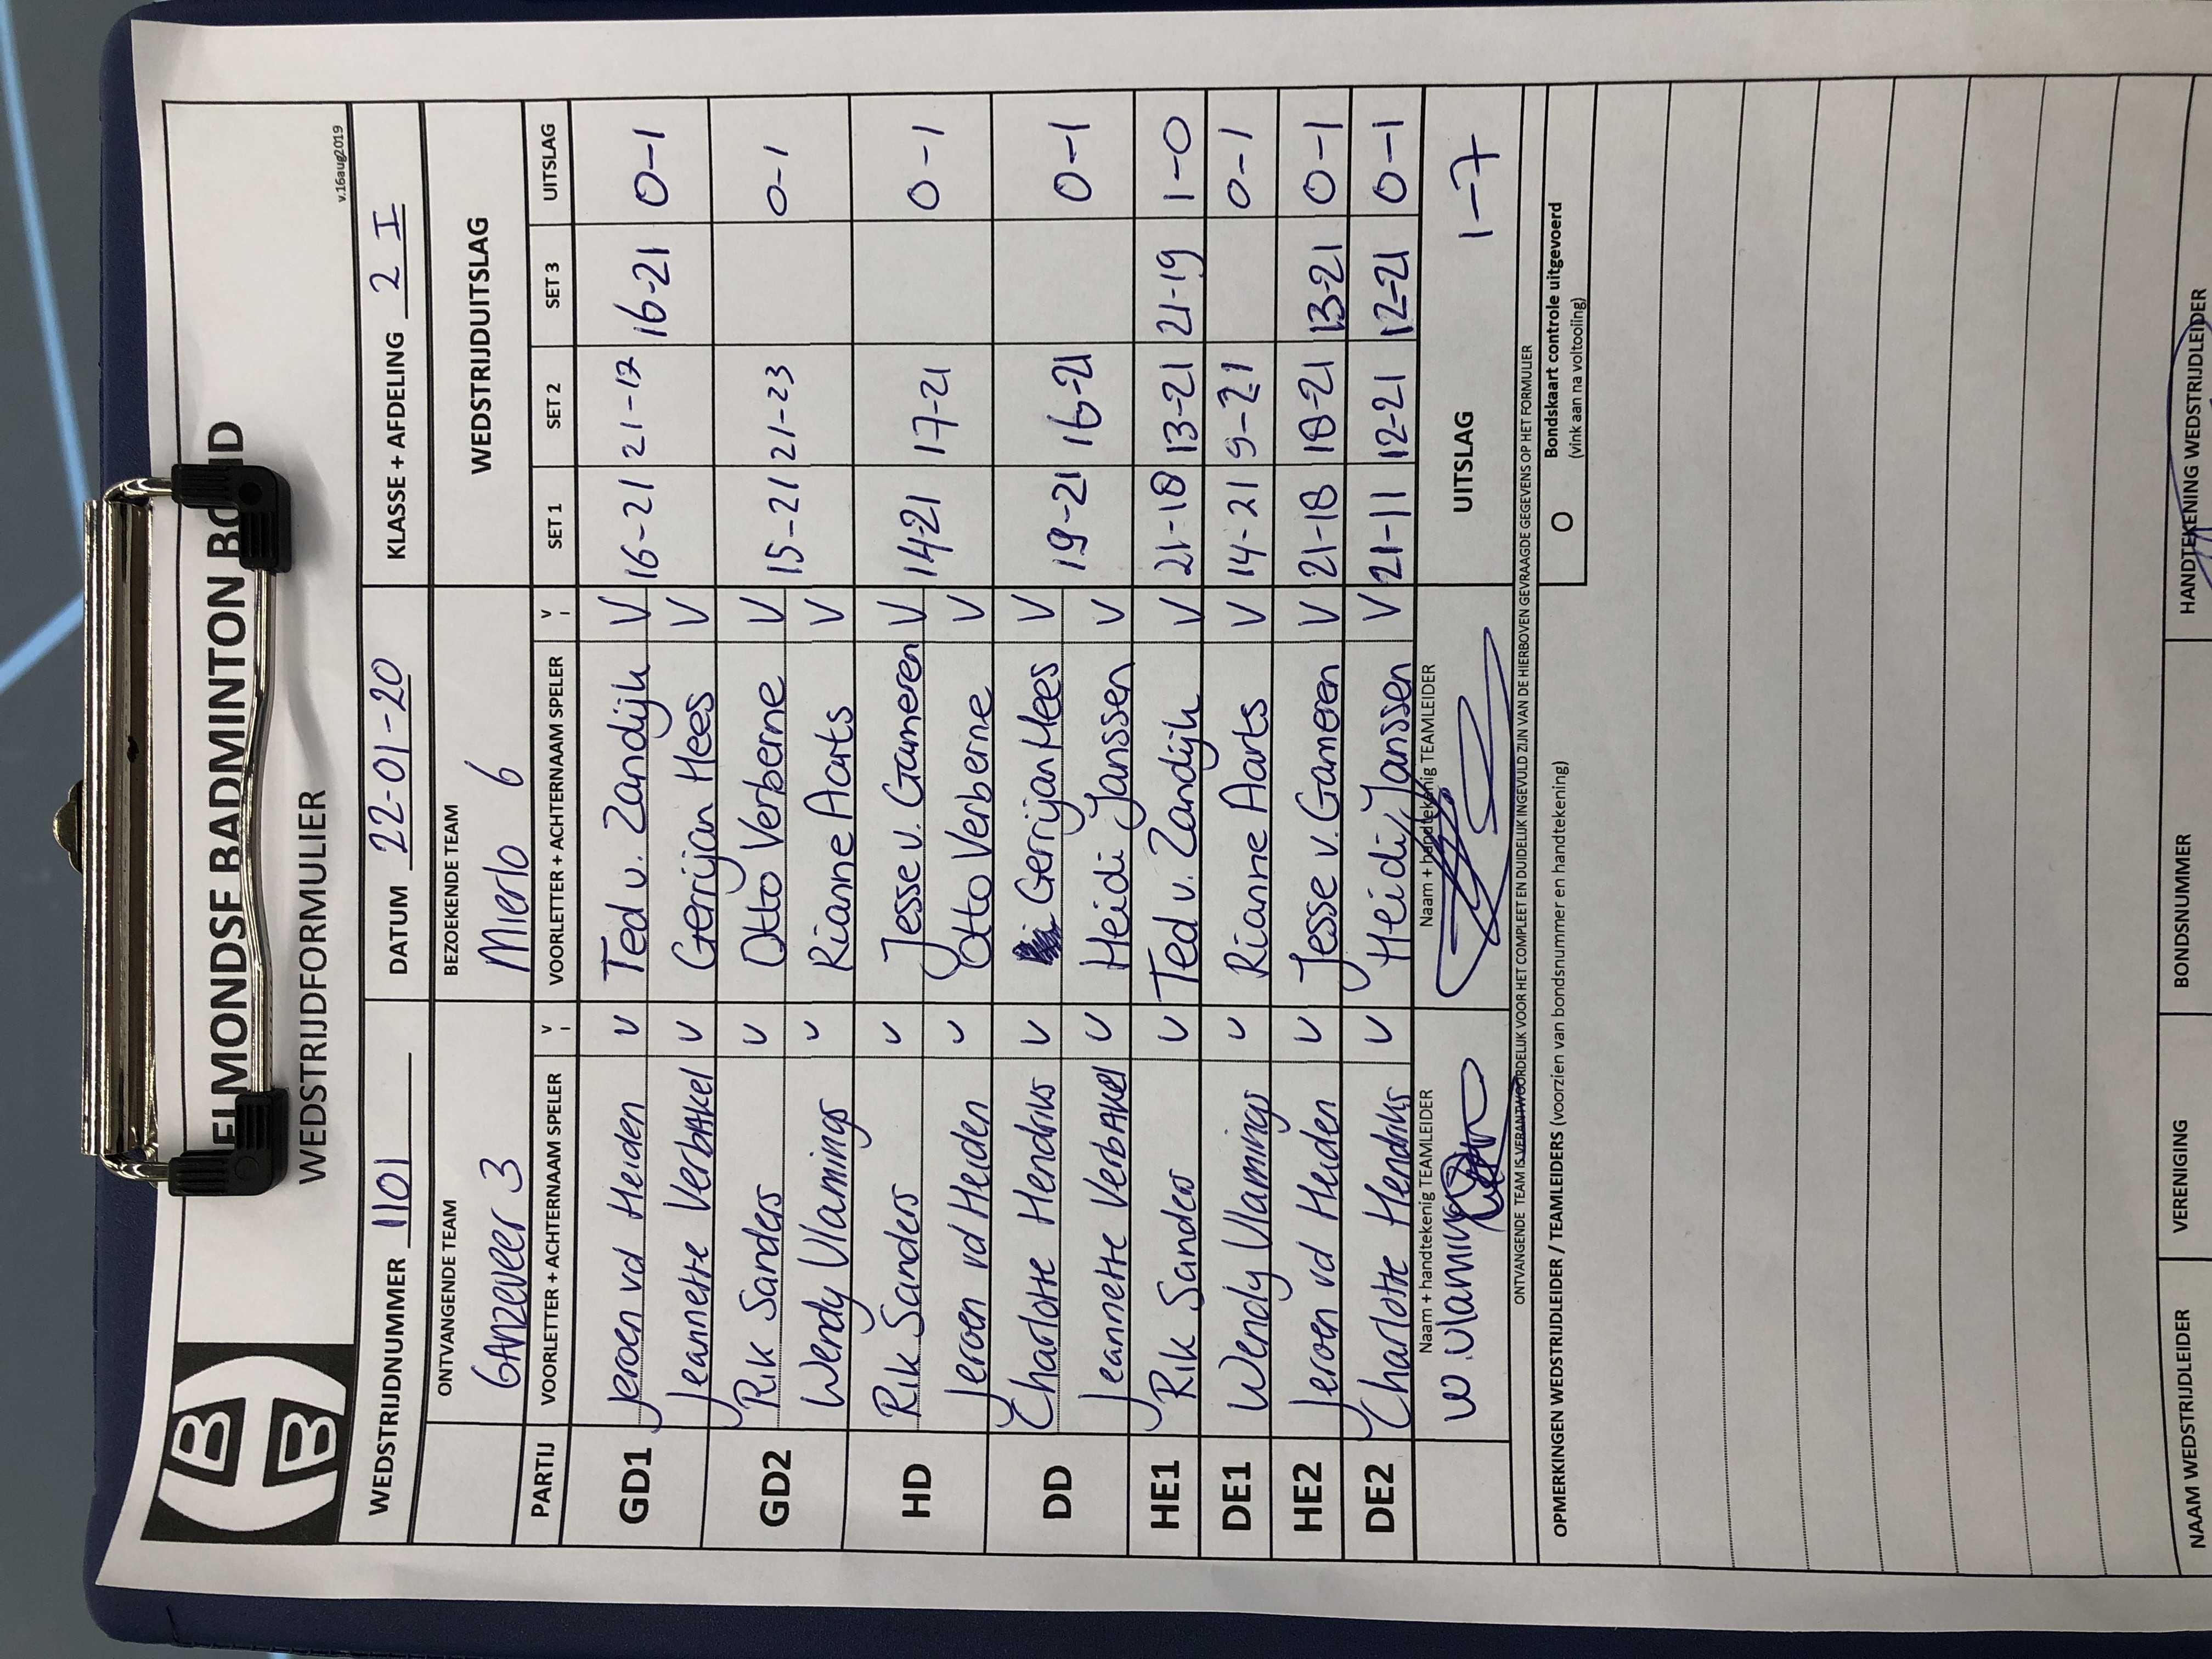 HELMONDSE BADMINTON BOND
WEDSTRIJDFORMULIER
v.16aug2019
WEDSTRIJDNUMMER 1101 DATUM 22-01-20 KLASSE + AFDELING 2 I
ONTVANGENDE TEAM BEZOEKENDE TEAM WEDSTRIJDUITSLAG
Ganzeveer 3 Mierlo 6
PARTIJ VOORLETTER + ACHTERNAAM SPELER V VOORLETTER + ACHTERNAAM SPELER V SET 1 SET 2 SET 3 UITSLAG
GD1 Jeroen vd Heiden V Ted v. Zandijk V 16-21 21-17 16-21 0-1
Jeannette Verbakel V Gerrijan Hees V
GD2 Rik Sanders V Otto Verberne V 15-21 21-23 0-1
Wendy Vlamings V Rianne Aarts V
HD Rik Sanders V Jesse v. Gameren V 14-21 17-21 0-1
Jeroen vd Heiden V Otto Verberne V
DD Charlotte Hendriks V Gerrijan Hees V 19-21 16-21 0-1
Jeannette Verbakel V Heidi Janssen V
HE1 Rik Sanders V Ted v. Zandijk V 21-18 13-21 21-19 1-0
DE1 Wendy Vlamings V Rianne Aarts V 14-21 9-21 0-1
HE2 Jeroen vd Heiden V Jesse v. Gameren V 21-18 18-21 13-21 0-1
DE2 Charlotte Hendriks V Heidi Janssen V 21-11 12-21 12-21 0-1
Naam + handtekenig TEAMLEIDER Naam + handtekenig TEAMLEIDER UITSLAG 1-7
W. Vlamings
ONTVANGENDE TEAM IS VERANTWOORDELIJK VOOR HET COMPLEET EN DUIDELIJK INGEVULD ZIJN VAN DE HIERBOVEN GEVRAAGDE GEGEVENS OP HET FORMULIER
OPMERKINGEN WEDSTRIJDLEIDER / TEAMLEIDERS (voorzien van bondsnummer en handtekening)
O Bondskaart controle uitgevoerd
(vink aan na voltooiing)
NAAM WEDSTRIJDLEIDER VERENIGING BONDSNUMMER HANDTEKENING WEDSTRIJDLEIDER